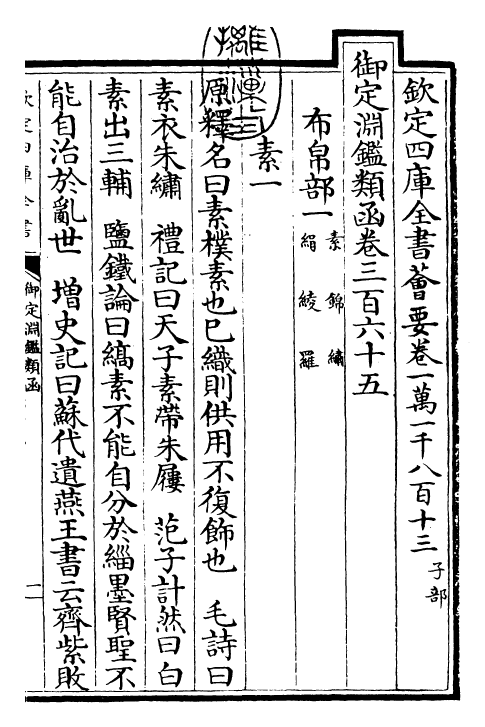 欽定四庫全書薈要卷一萬一千八百十三 子部
御定淵鑑類函卷三百六十五
布帛部一 素 錦 繡 絹 綾 羅
素一
原釋名曰素樸素也已織則供用不復飾也 毛詩曰
素衣朱繡 禮記曰天子素帶朱屨 范子計然曰白
素出三輔 鹽鐵論曰縞素不能自分於緇墨賢聖不
能自治於亂世 增史記曰蘇代遺燕王書云齊紫敗
欽定四庫全書
御定淵鑑類函
一